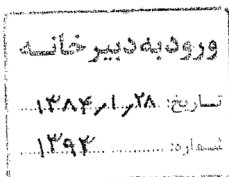 ورود به دبیرخانه
تاریخ: ۱۳۸۴/۱/۲۸
شماره: ۱۳۹۳